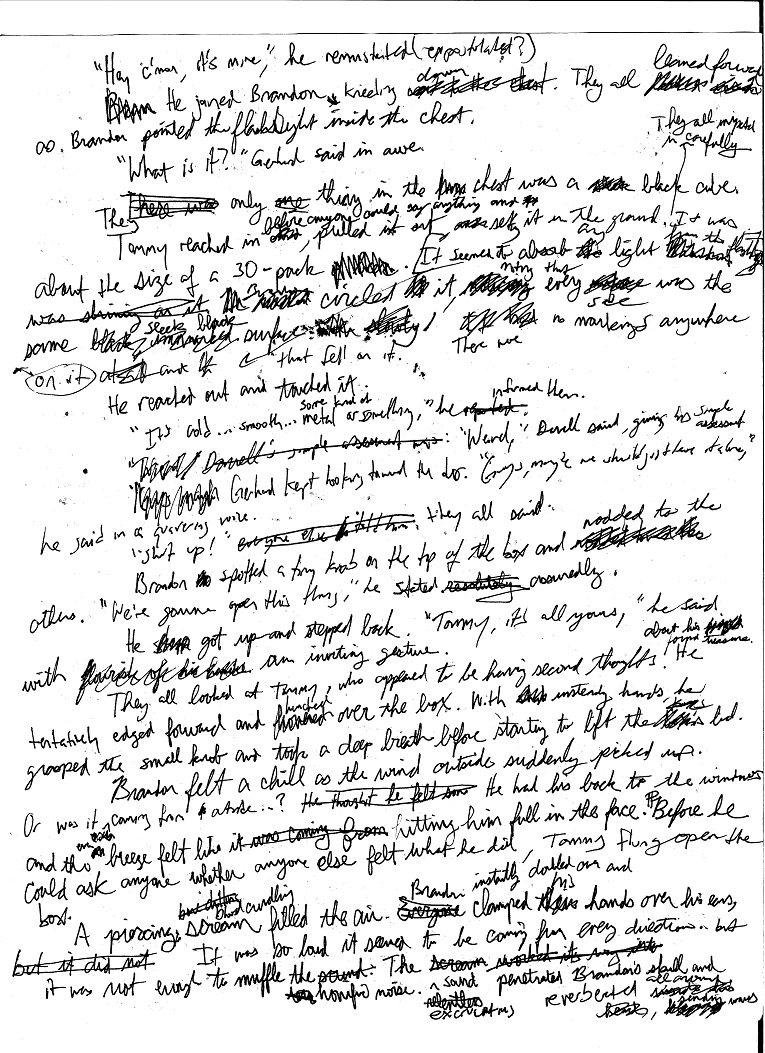 "Hey c'mon, it's mine," he remonstrated (expostulated?)
He joined Brandon, kneeling down. They all leaned forward
oo. Brandon pointed the flashlight inside the chest.
They all inspected it carefully
"What is it?" Gerhard said in awe.
The only thing in the chest was a black cube.
They
before anyone could say anything and
Tommy reached in, pulled it out set it on the ground. It was
about the size of a 30-pack. It seemed to absorb light
was circled it, noting that every side was the
same sleek black surface no markings anywhere
on it that fell on it. There were
He reached out and touched it.
"It's cold... smooth... some kind of metal or something," he informed them.
"Weird," Darrell said, giving his simple assessment
Gerhard kept looking toward the door. "Guys, maybe we should just leave it alone,"
he said in a quavering voice.
"Shut up!" they all said.
Brandon spotted a tiny knob on the top of the box and nodded to the
others. "We're gonna open this thing," he stated assuredly.
He got up and stepped back. "Tommy, it's all yours," he said
with an inviting gesture.
about his found treasure.
They all looked at Tommy, who appeared to be having second thoughts. He
tentatively edged forward and hunched over the box. With unsteady hands, he
grasped the small knob and took a deep breath before starting to lift the lid.
Brandon felt a chill as the wind outside suddenly picked up.
Or was it coming from inside..? He thought he felt He had his back to the windows
and the breeze felt like it was coming from hitting him full in the face. Before he
could ask anyone whether anyone else felt what he did, Tommy flung open the
box.
A piercing, blood curdling scream filled the air. Brandon instantly doubled over and
Everyone clamped his hands over his ears,
but it did not It was so loud it seemed to be coming from every direction.. but
it was not enough to muffle the sound. The scream
horrific noise. sound penetrates Brandon's skull and
relentless excruciating reverberated all around
waves